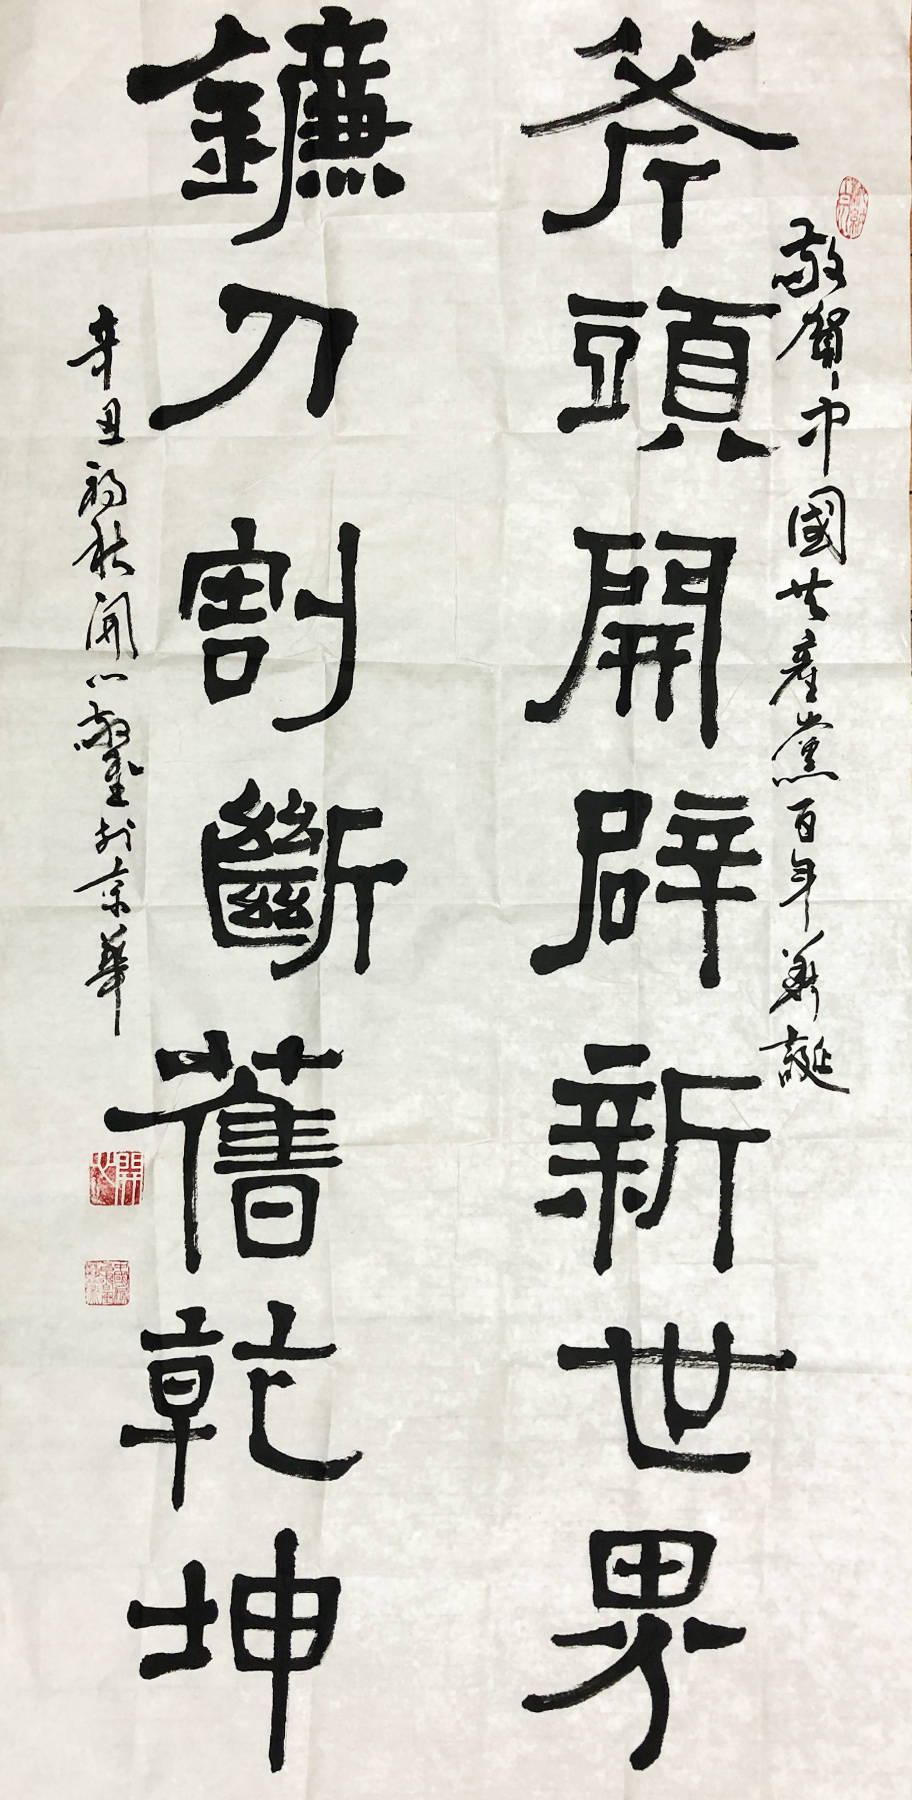 敬賀中國共產黨百年華誕
斧頭開闢新世界
鐮刀割斷舊乾坤
辛丑初秋開心敬書於京華